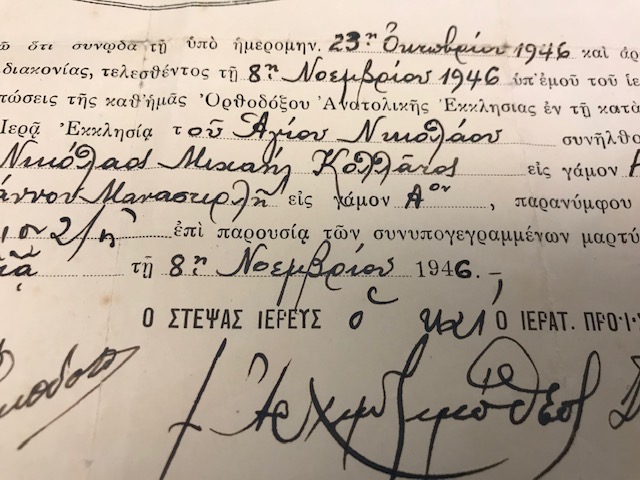 ὅτι συνῳδα τῇ ὑπὸ ἡμερομην. 23ῃ Ὀκτωβρίου 1946 καὶ ἀρ
διακονίας, τελεσθέντος τῇ 8ῃ Νοεμβρίου 1946 ὑπ' ἐμοῦ τοῦ ἱε
τώσεις τῆς καθ' ἡμᾶς Ὀρθοδόξου Ἀνατολικῆς Ἐκκλησιας ἐν τῇ κατὰ
Ἱερᾷ Ἐκκλησίᾳ τοῦ Ἁγίου Νικολάου συνῆλθο
Νικόλαος Μιχαήλ Κολλᾶτος εἰς γάμον
άννου Μαναστερλῆ εἰς γάμον Αον , παρανύμφου
ἐπὶ παρουσίᾳ τῶν συνυπογεγραμμένων μαρτύ
τῇ 8ῃ Νοεμβρίου 1946.-
Ο ΣΤΕΨΑΣ ΙΕΡΕΥΣ ὁ καὶ Ο ΙΕΡΑΤ. ΠΡΟ·Ι·